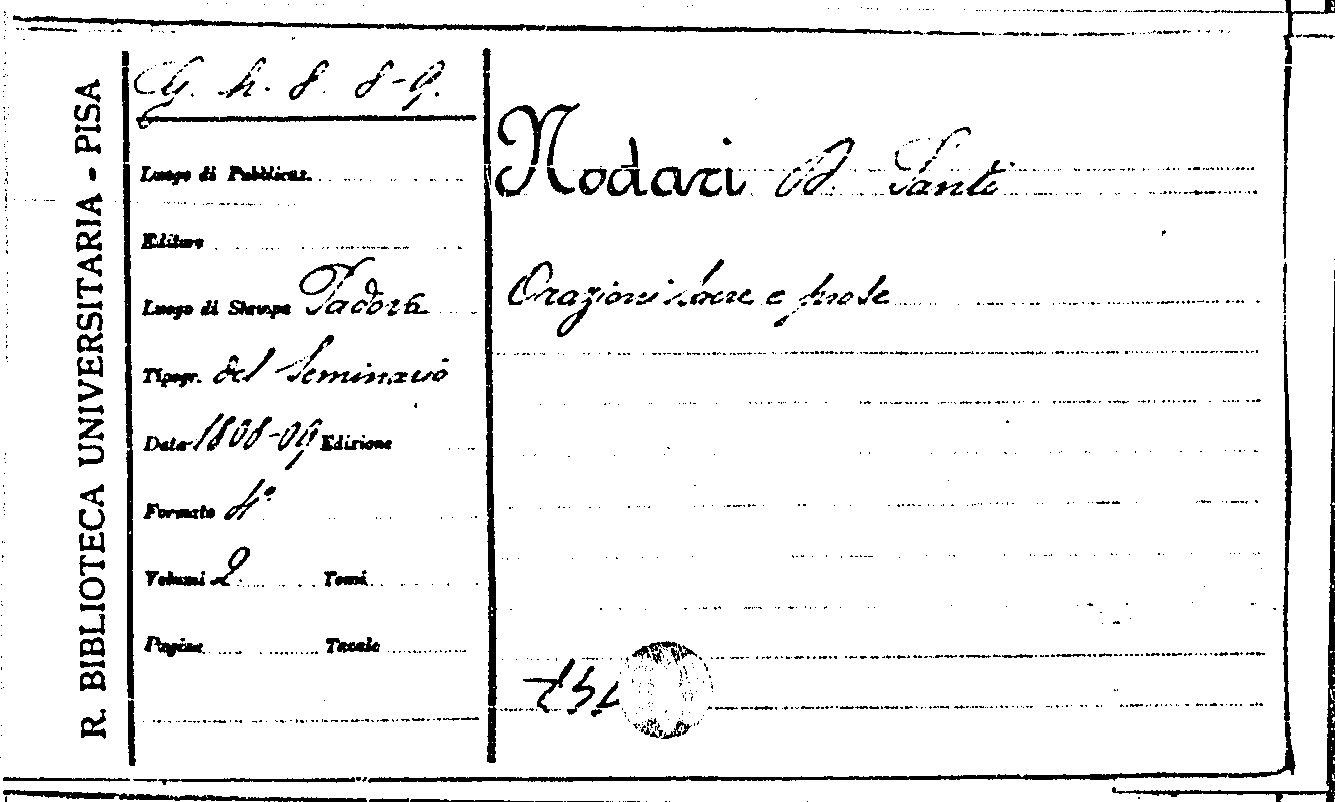 R. BIBLIOTECA UNIVERSITARIA - PISA
G. h. 8. 8-9.
Luogo di Pubblicaz.
Editore
Luogo di Stampa Padova
Tipogr. del Seminario
Data 1808-09 Edizione
Formato 4°
Volumi 2 Tomi
Pagine Tavole
Nodari Santi
Orazioni sacre e prose